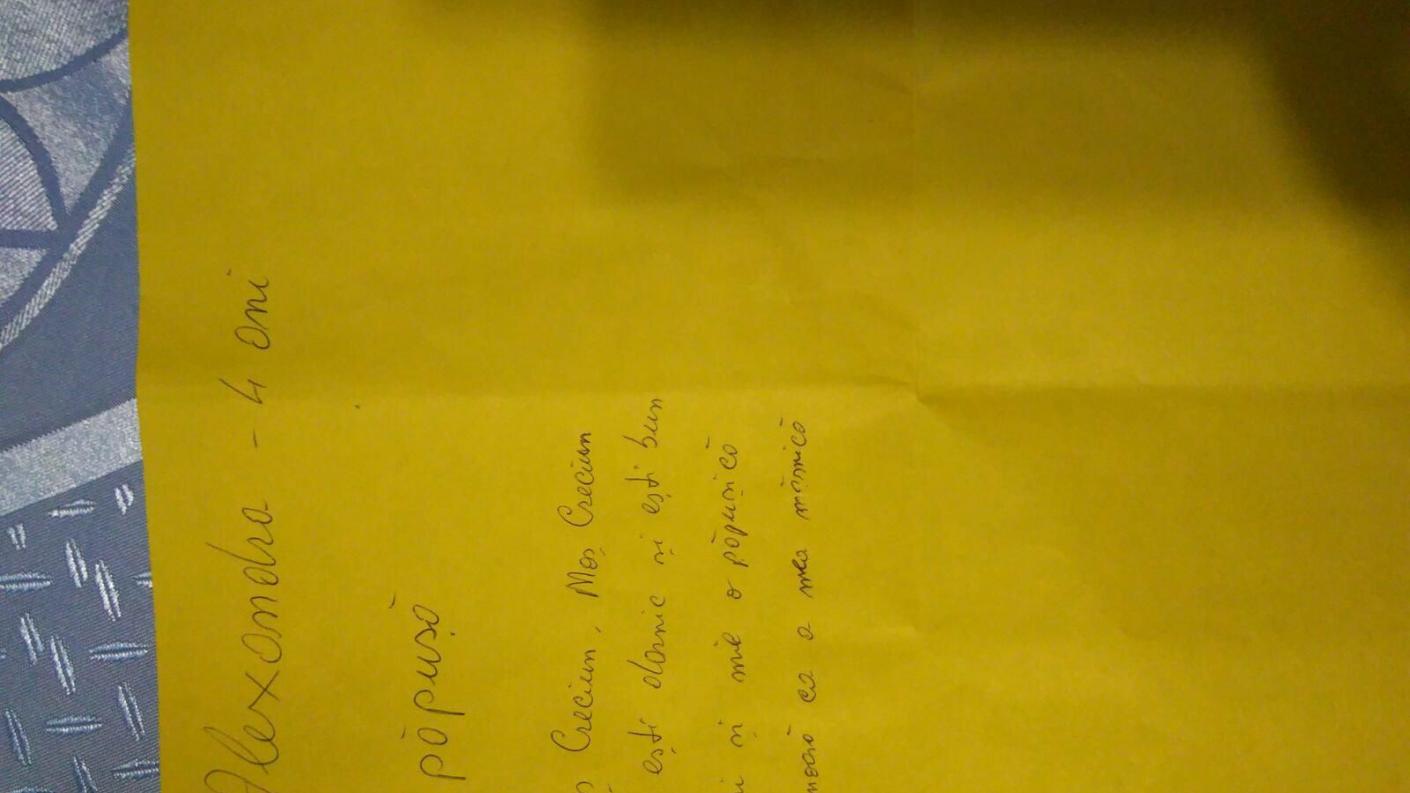 Alexandra - 4 ani
păpușă
Crecium, Moș Crecium
ești darnic și ești bun
și mie o păpușică
ca a mea mămică